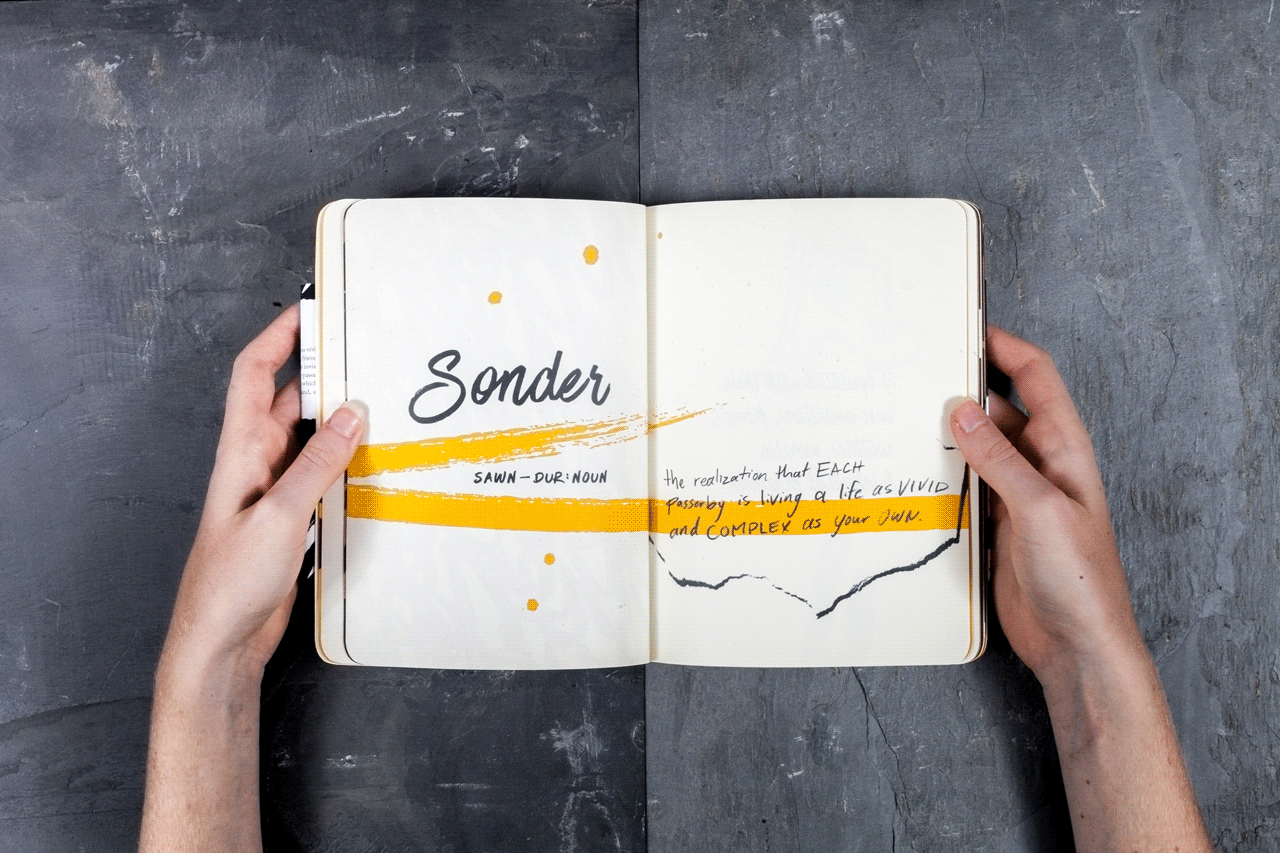 Sonder
SAWN—DUR:NOUN
the realization that EACH
passerby is living a life as VIVID
and COMPLEX as your OWN.